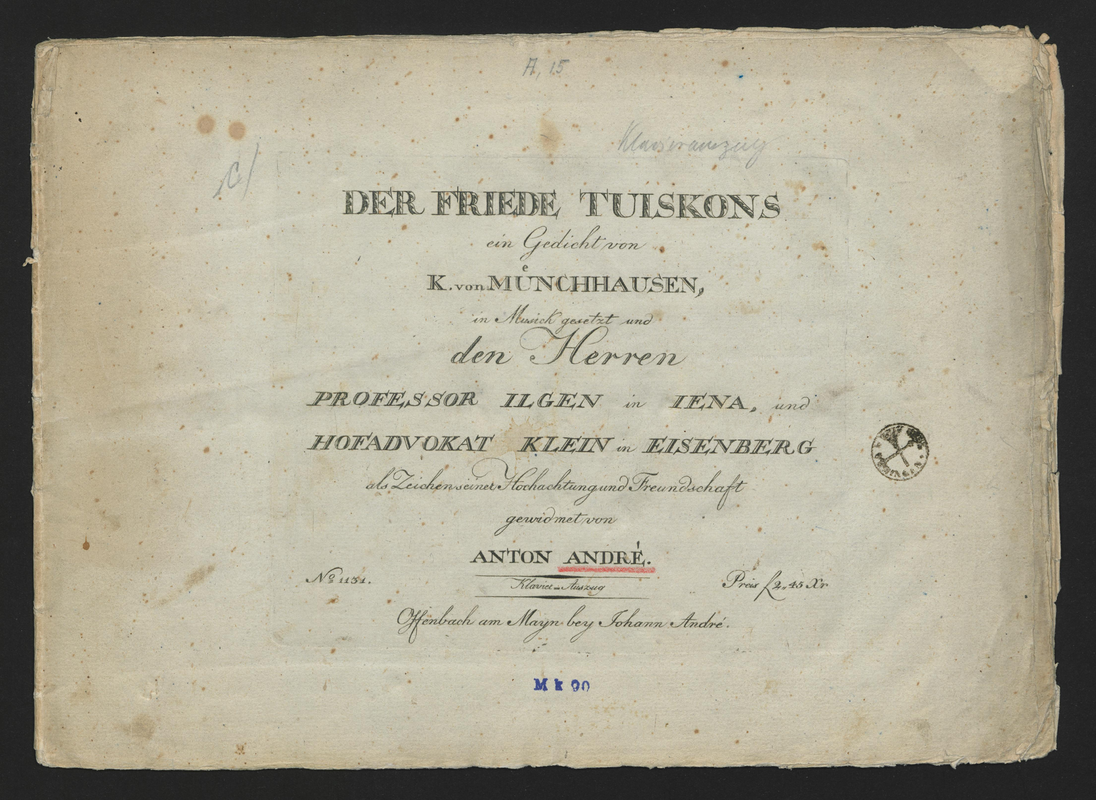 A, 15
Klavierauszug
DER FRIEDE TUISKONS
ein Gedicht von
K. von MUͤNCHHAUSEN,
in Musick gesetzt und
den Herren
PROFESSOR ILGEN in IENA, und
HOFADVOKAT KLEIN in EISENBERG
als Zeichen seiner Hochachtung und Freundschaft
gewidmet von
ANTON ANDRÉ.
No 1151.
Klavier-Auszug
Preis f 2,, 45 Xr
Offenbach am Mayn bey Johann André.
Mk 90